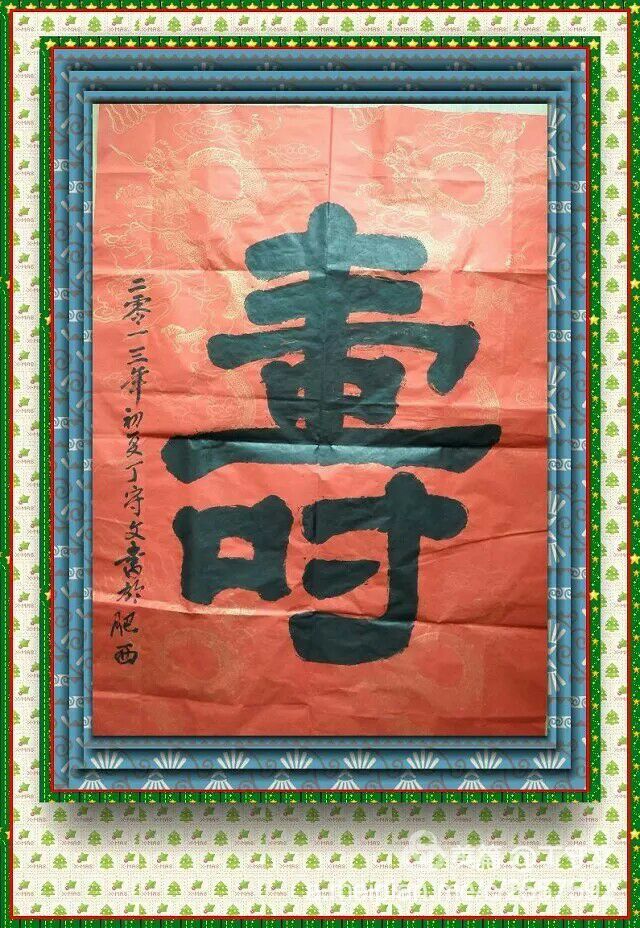 壽
二零一三年初夏丁守文書於肥西
X-MAS